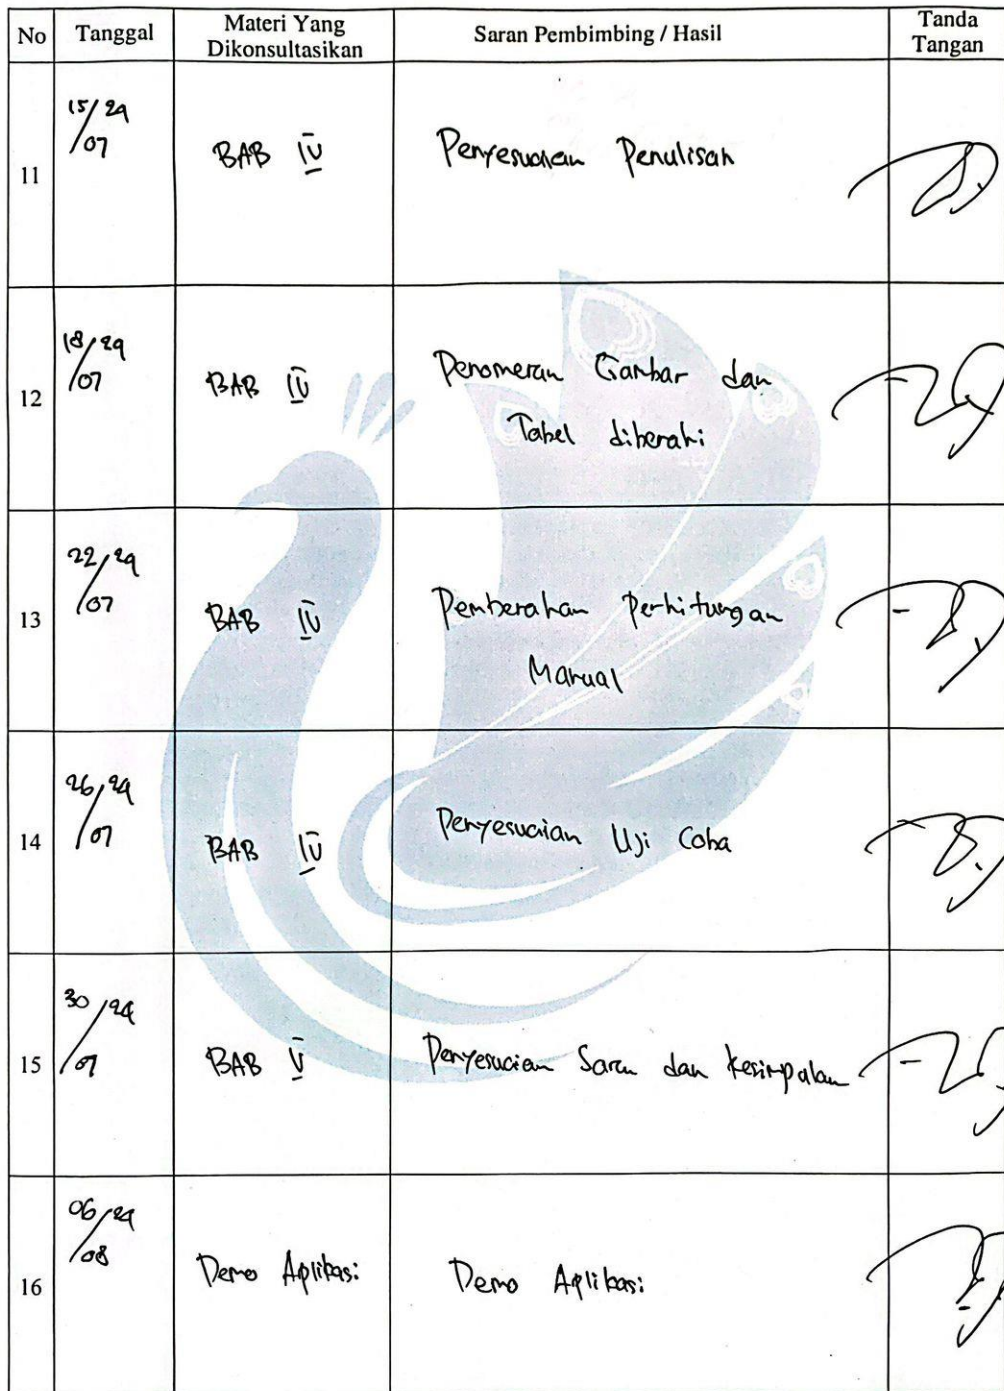 No Tanggal Materi Yang Dikonsultasikan Saran Pembimbing / Hasil Tanda Tangan
11 15/07 24 BAB IV Penyesuaian Penulisan
12 18/07 24 BAB IV Penomeran Gambar dan
Tabel diberahi
13 22/07 24 BAB IV Pemberahan Perhitungan
Manual
14 26/07 24 BAB IV Penyesuaian Uji Coba
15 30/07 24 BAB V Penyesuaian Saran dan Kesimpulan
16 06/08 24 Demo Aplikasi Demo Aplikasi